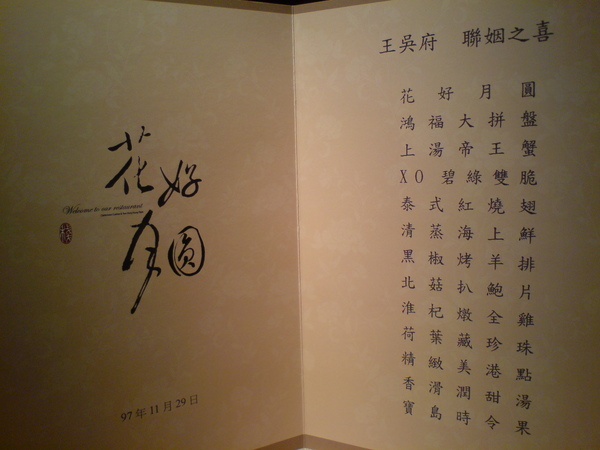 花好
月圓
Welcome to our restaurant
97年11月29日
王吳府 聯姻之喜
花好月圓
鴻福大拼盤
上湯帝王蟹
XO碧綠雙脆
泰式紅燒翅
清蒸海上鮮
黑椒烤羊排
北菇扒鮑片
淮杞燉全雞
荷葉藏珍珠
精緻美港點
香滑潤甜湯
寶島時令果